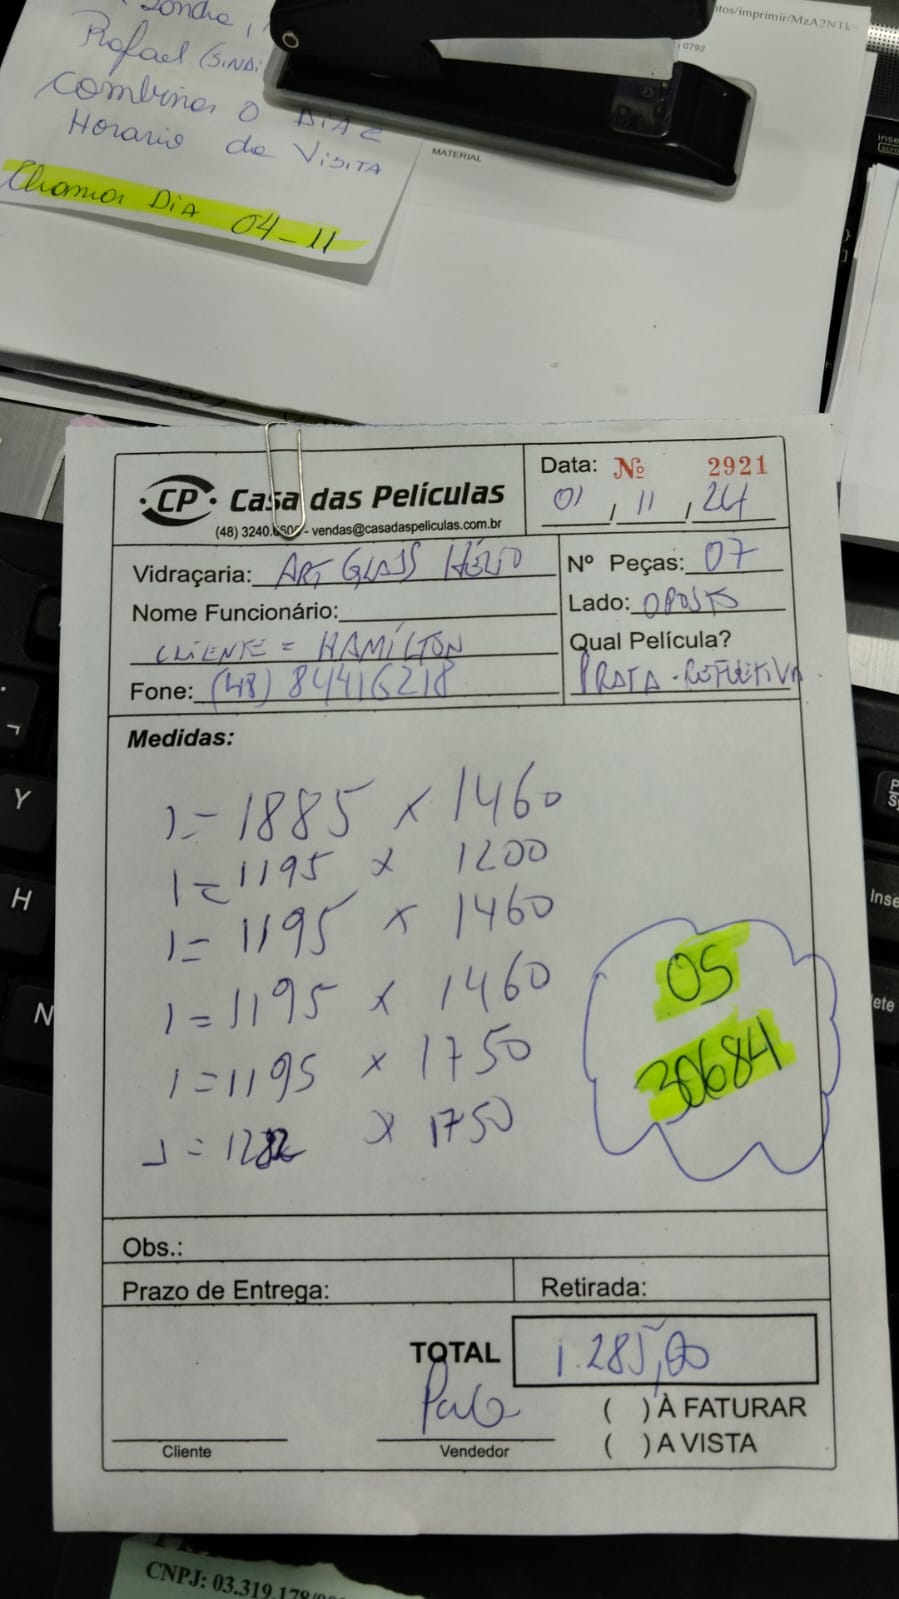 Rafael (SINDI
combinar o DIA e
Horario da VISITA
Chamar DIA 04-11
tos/imprimir/MzA2NTk
0792
MATERIAL
inse
Y
H
N
Inse
ete
CP Casa das Películas
(48) 3240. - vendas@casadaspeliculas.com.br
Data: Nº 2921
01, 11, 24
Vidraçaria: ART GLASS HÉLIO
Nº Peças: 07
Nome Funcionário:
Lado: OPOSTO
CLIENTE = HAMÍLTON
Qual Película?
Fone: (48) 84416218
PRATA - REFLETIVA
Medidas:
1 = 1885 x 1460
1 = 1195 x 1200
1 = 1195 x 1460
1 = 1195 x 1460
1 = 1195 x 1750
1 = x 1750
OS
30684
Obs.:
Prazo de Entrega:
Retirada:
TOTAL 1.285,00
( ) À FATURAR
( ) A VISTA
Cliente
Vendedor
CNPJ: 03.319.178/